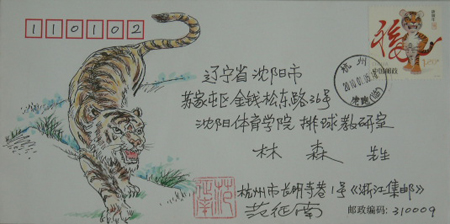 110102
福
中国邮政
杭州
辽宁省沈阳市
苏家屯区金钱松东路36号
沈阳体育学院 排球教研室
林森 先生
杭州市长明寺巷1号《浙江集邮》
范征南
邮政编码: 310009